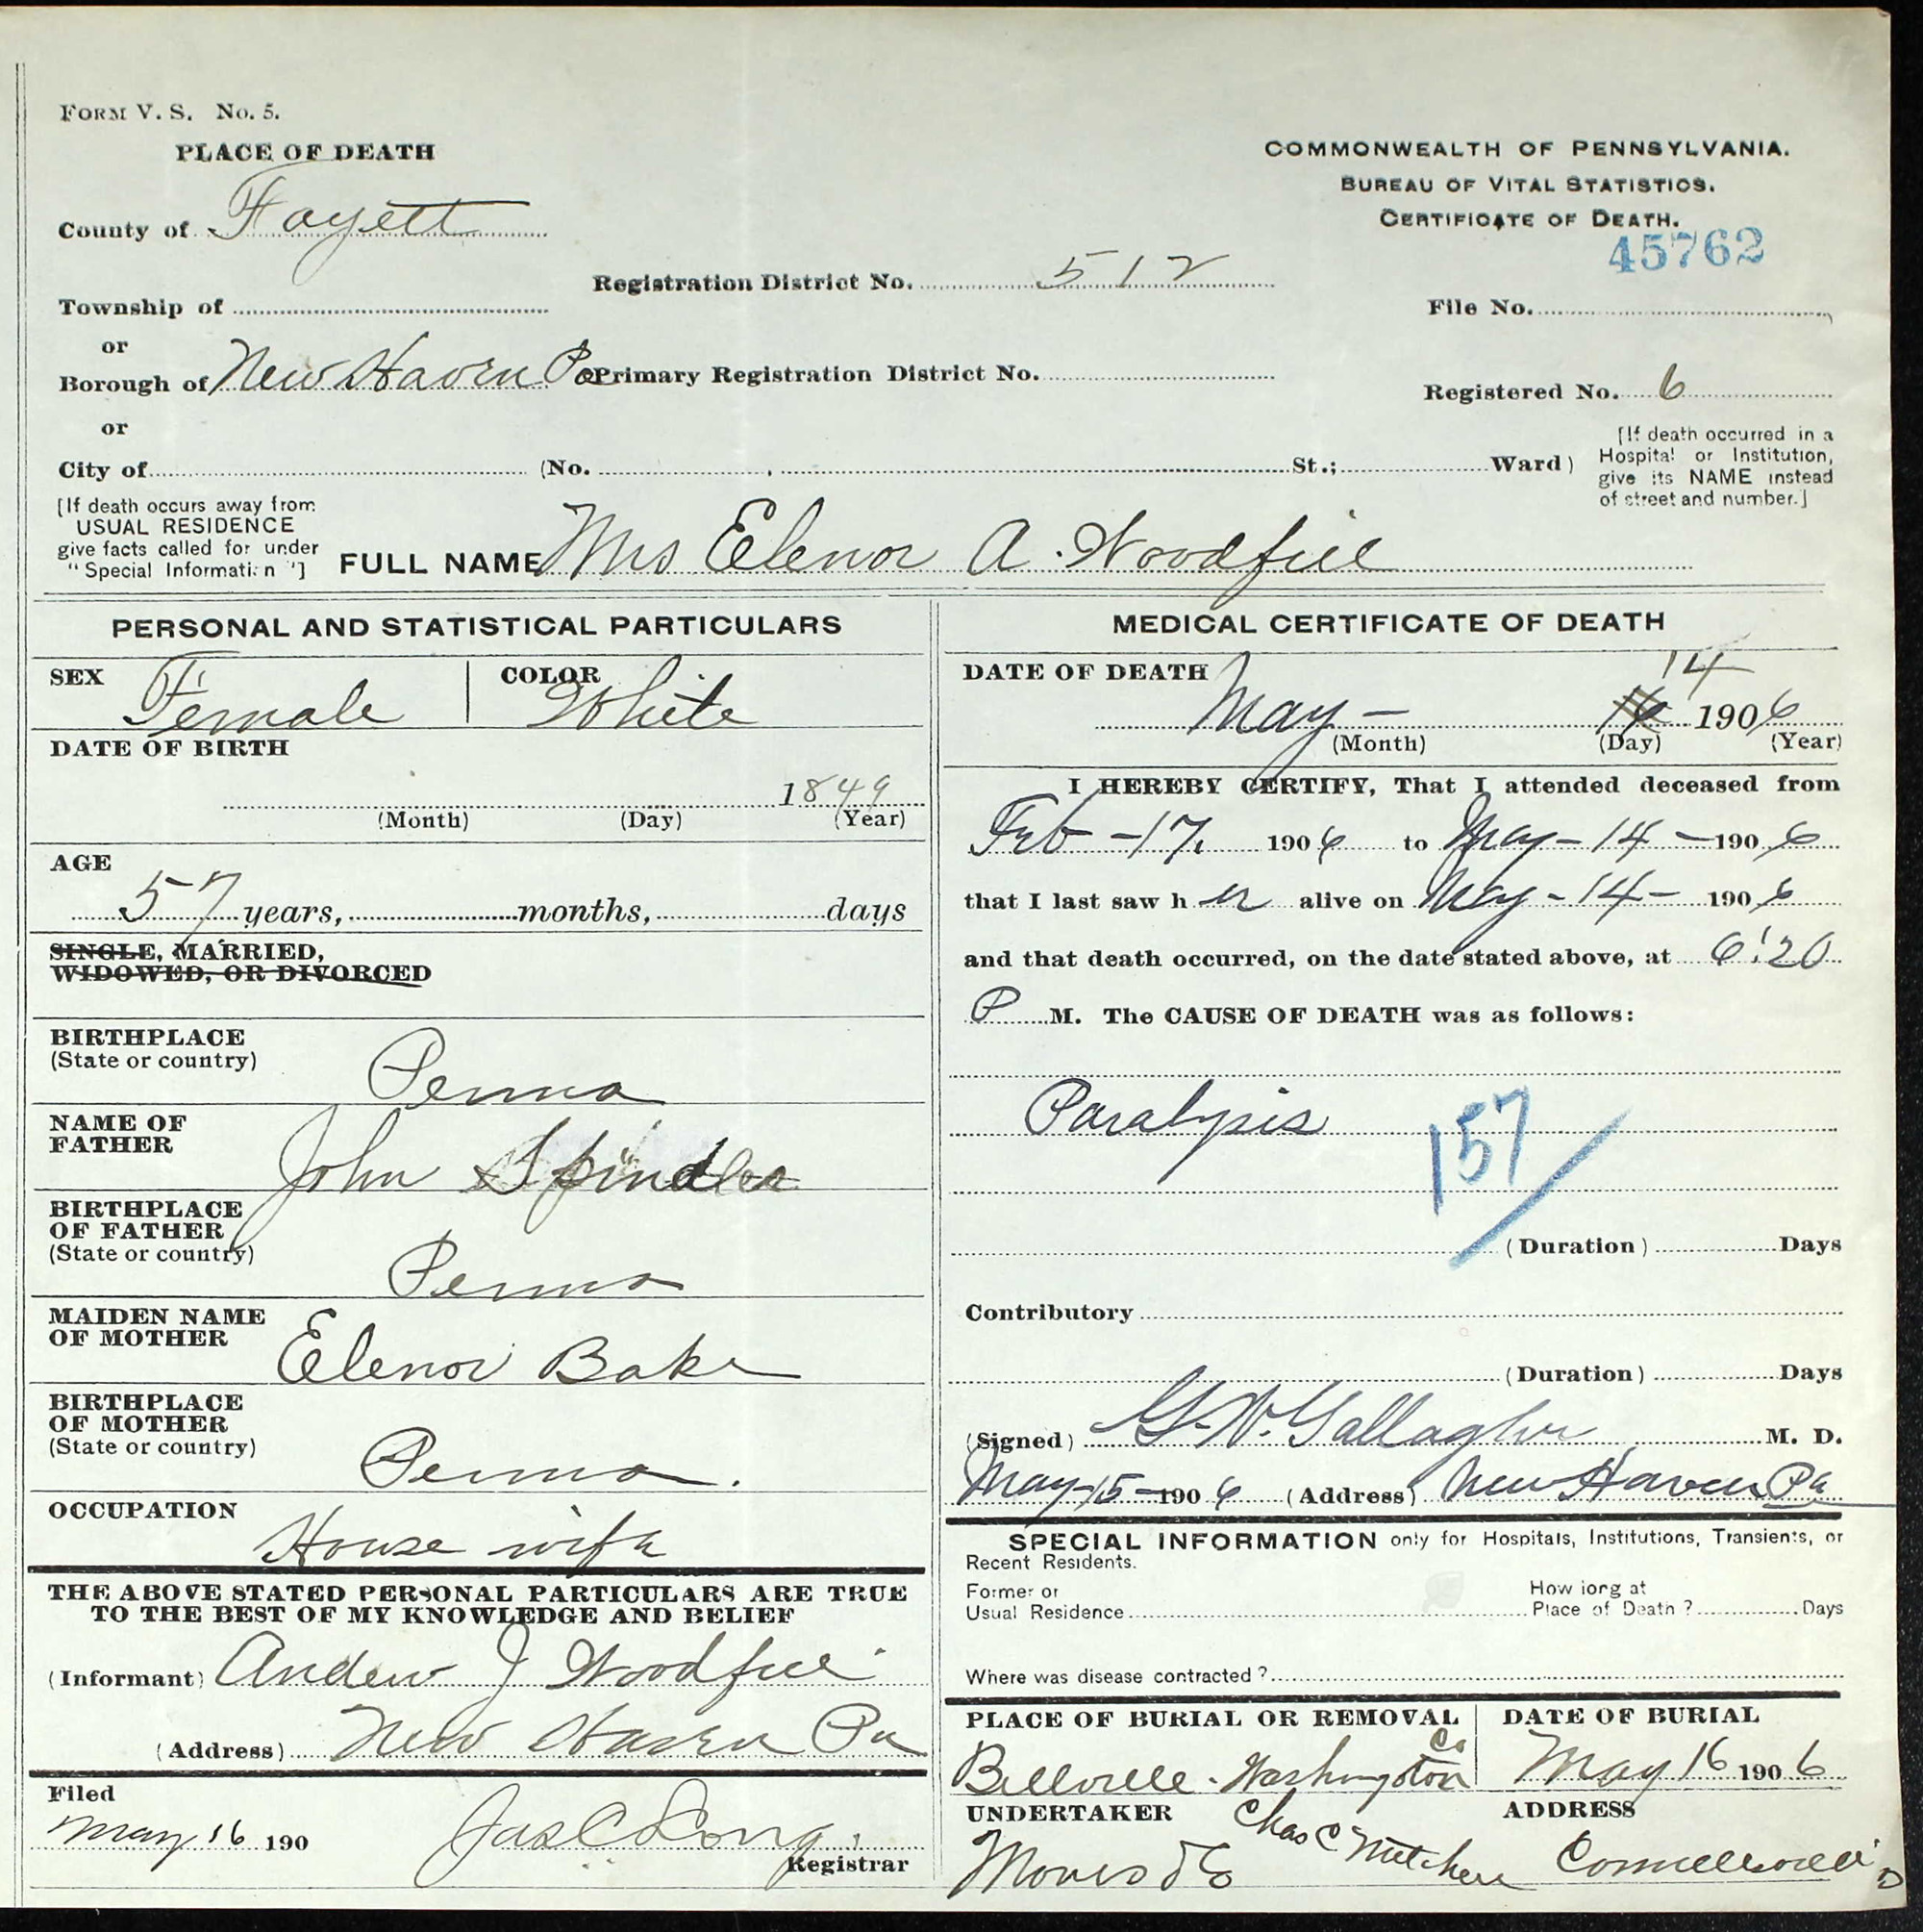 FORM V. S. No. 5.
PLACE OF DEATH
COMMONWEALTH OF PENNSYLVANIA.
BUREAU OF VITAL STATISTICS.
CERTIFICATE OF DEATH.
45762
County of Fayett
Registration District No. 512
Township of
File No.
or
Borough of New Haven Pa Primary Registration District No.
Registered No. 6
or
City of (No. , St.; Ward)
[If death occurred in a
Hospital or Institution,
give its NAME instead
of street and number.]
[If death occurs away from
USUAL RESIDENCE
give facts called for under
"Special Information"]
FULL NAME Mrs Elenor A. Woodfill
PERSONAL AND STATISTICAL PARTICULARS
SEX Female
COLOR White
DATE OF BIRTH
1849
(Month) (Day) (Year)
AGE
57 years, months, days
SINGLE, MARRIED,
WIDOWED, OR DIVORCED
BIRTHPLACE
(State or country)
Penna
NAME OF
FATHER
John Spindler
BIRTHPLACE
OF FATHER
(State or country)
Penna
MAIDEN NAME
OF MOTHER
Elenor Baker
BIRTHPLACE
OF MOTHER
(State or country)
Penna.
OCCUPATION
House wife
THE ABOVE STATED PERSONAL PARTICULARS ARE TRUE
TO THE BEST OF MY KNOWLEDGE AND BELIEF
(Informant) Andew J Woodfill
(Address) New Haven Pa
Filed
May 16 190
Jas C Long
Registrar
MEDICAL CERTIFICATE OF DEATH
DATE OF DEATH
14
May - 16 1906
(Month) (Day) (Year)
I HEREBY CERTIFY, That I attended deceased from
Feb - 17, 1906 to May - 14 - 1906
that I last saw her alive on May - 14 - 1906
and that death occurred, on the date stated above, at 6:20
P M. The CAUSE OF DEATH was as follows:
Paralysis
157
(Duration) Days
Contributory
(Duration) Days
(Signed) G. W. Gallagher M. D.
May-15-1906 (Address) New Haven Pa
SPECIAL INFORMATION only for Hospitals, Institutions, Transients, or
Recent Residents.
Former or
Usual Residence
How long at
Place of Death? Days
Where was disease contracted?
PLACE OF BURIAL OR REMOVAL
Bellville - Washington Co
DATE OF BURIAL
May 16 1906
UNDERTAKER
Chas C Mitchell
ADDRESS
Connellsville